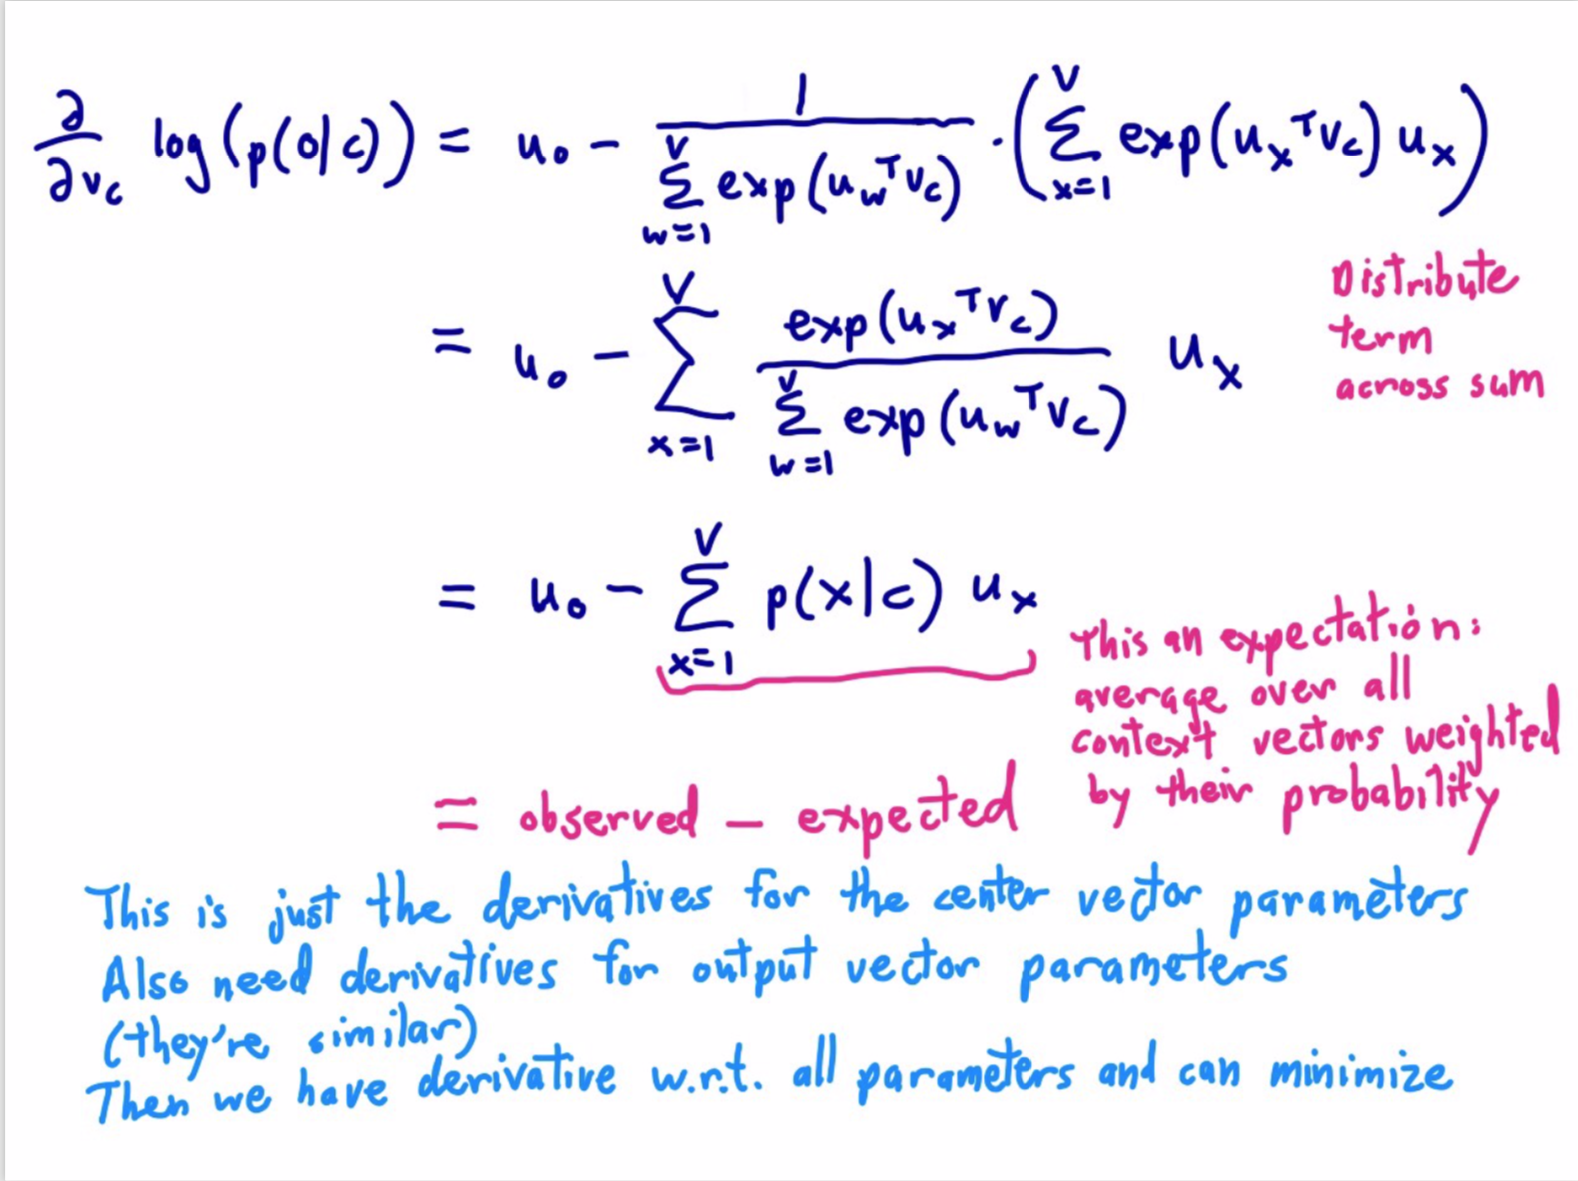 ∂/∂v_c log(p(o|c)) = u_o − 1/(∑_{w=1}^{V} exp(u_w^T v_c)) · (∑_{x=1}^{V} exp(u_x^T v_c) u_x)
Distribute
term
across sum
= u_o − ∑_{x=1}^{V} exp(u_x^T v_c)/(∑_{w=1}^{V} exp(u_w^T v_c)) u_x
= u_o − ∑_{x=1}^{V} p(x|c) u_x
This an expectation:
average over all
context vectors weighted
by their probability
= observed − expected
This is just the derivatives for the center vector parameters
Also need derivatives for output vector parameters
(they're similar)
Then we have derivative w.r.t. all parameters and can minimize